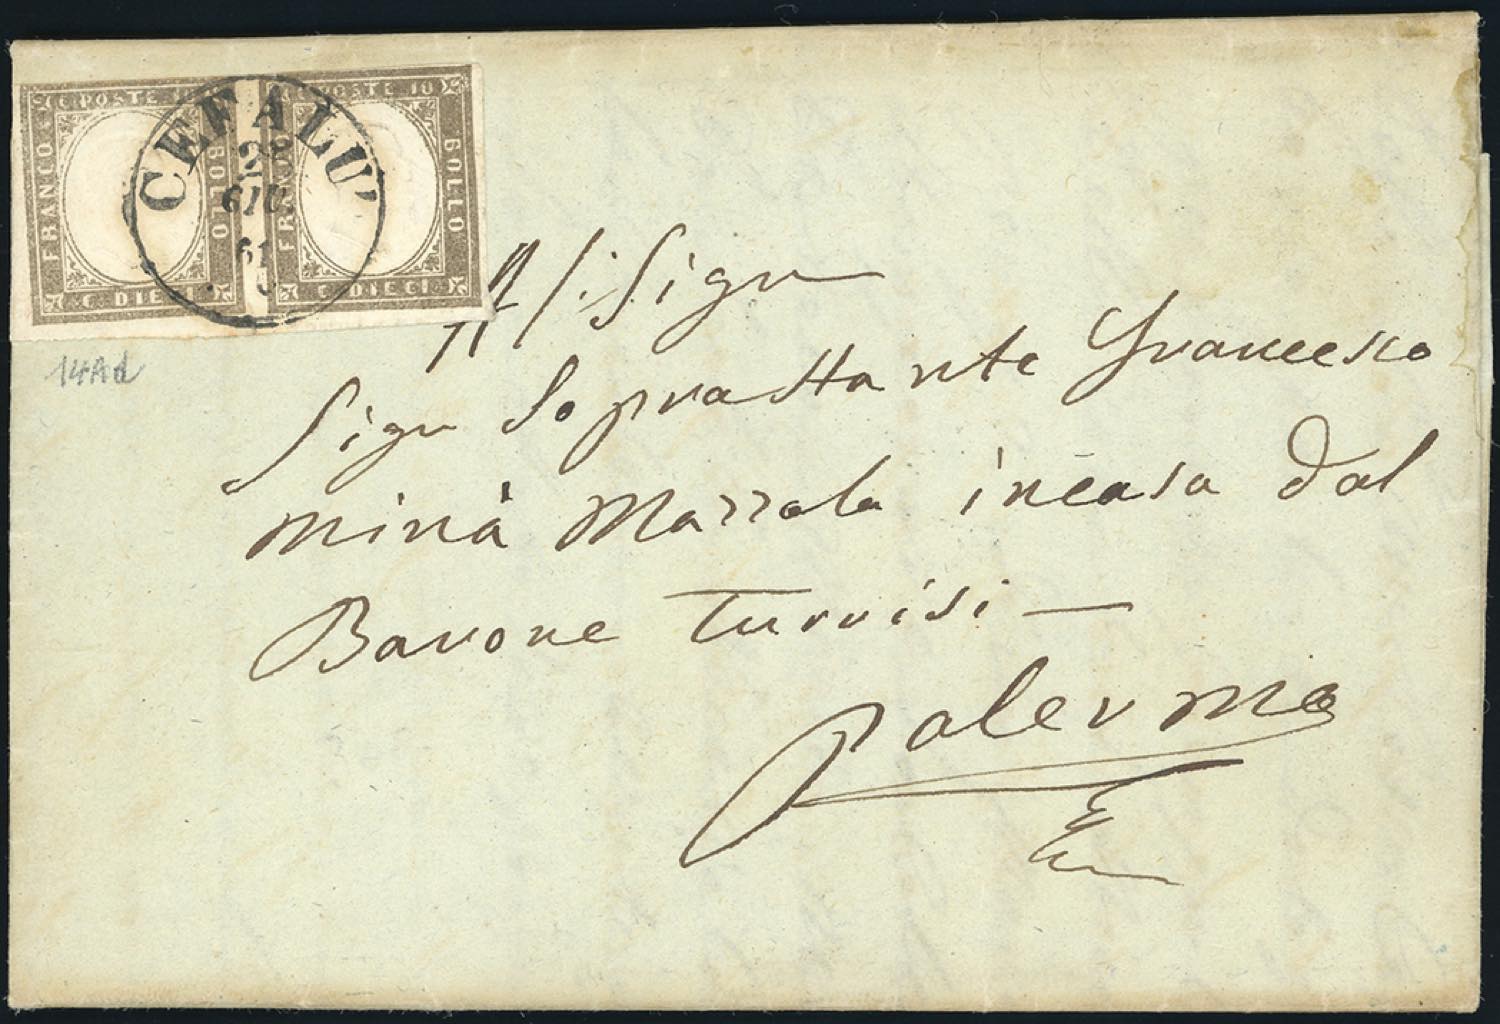 C POSTE 10
POSTE 10
FRANCO
BOLLO
FRANCO
BOLLO
C DIECI
C DIECI
CEFALU'
28
GIU
61
14Ad
Al Sign
Sign Soprastante Francesco
Minà Mazzola in casa dal
Barone Turrisi —
Palermo